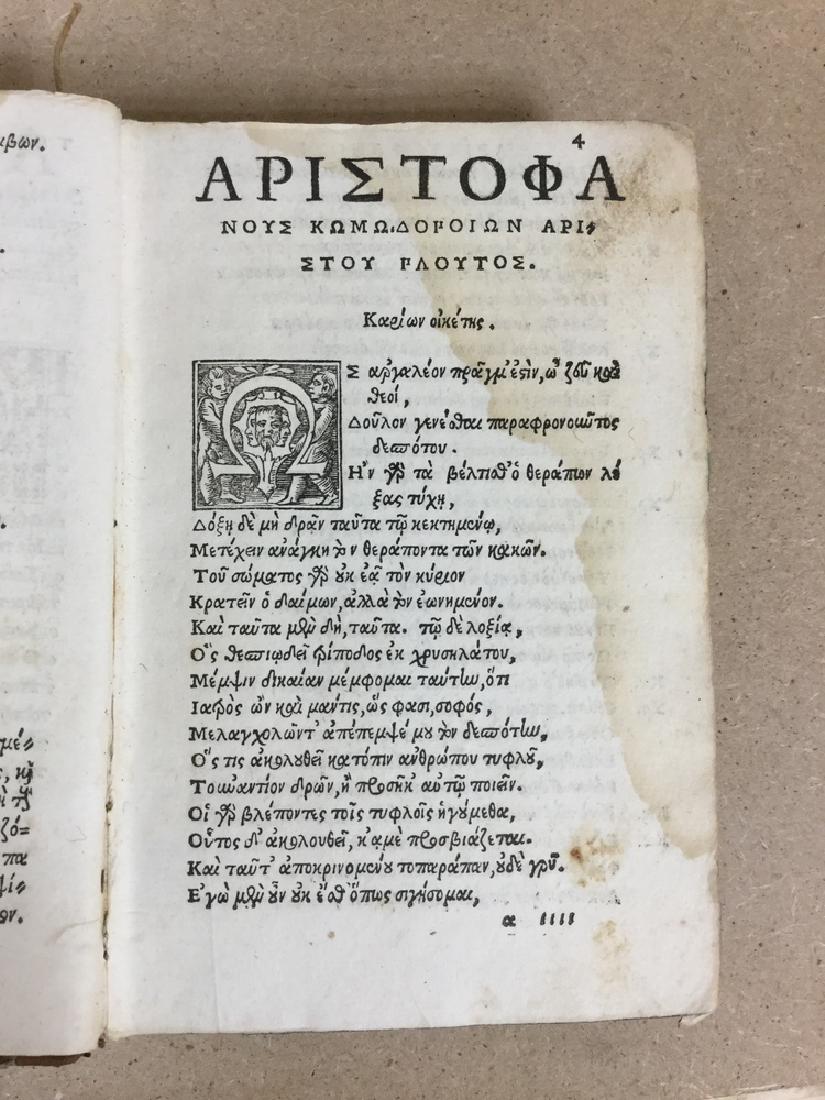 άβων.
4
ΑΡΙΣΤΟΦΑ
ΝΟΥΣ ΚΩΜΩΔΟΠΟΙΩΝ ΑΡΙ-
ΣΤΟΥ ΠΛΟΥΤΟΣ.
Καρίων οἰκέτης.
Ω Σ ἀργαλέον πρᾶγμ' ἐστὶν, ὦ ζεῦ καὶ
θεοί,
Δοῦλον γενέσθαι παραφρονοιῶτος
δεσπότου.
Ἢν γὰρ τὰ βέλτισθ' ὁ θεράπων λέ
ξας τύχῃ,
Δόξῃ δὲ μὴ δρᾶν ταῦτα τῷ κεκτημένῳ,
Μετέχειν ἀνάγκη τὸν θεράποντα τῶν κακῶν.
Τοῦ σώματος γὰρ οὐκ ἐᾷ τὸν κύριον
Κρατεῖν ὁ δαίμων, ἀλλὰ τὸν ἐωνημένον.
Καὶ ταῦτα μὲν δὴ, ταῦτα. τῷ δὲ λοξίᾳ,
Ὃς θεσπιῳδεῖ τρίποδος ἐκ χρυσηλάτου,
Μέμψιν δικαίαν μέμφομαι ταύτην, ὅτι
Ἰατρὸς ὢν καὶ μάντις, ὥς φασι, σοφός,
Μελαγχολῶντ' ἀπέπεμψέ μου τὸν δεσπότην,
Ὅς τις ἀκολουθεῖ κατόπιν ἀνθρώπου τυφλοῦ,
Τοὐναντίον δρῶν, ἢ προσῆκ' αὐτῷ ποιεῖν.
Οἱ γὰρ βλέποντες τοῖς τυφλοῖς ἡγούμεθα,
Οὗτος δ' ἀκολουθεῖ, κᾀμὲ προσβιάζεται.
Καὶ ταῦτ' ἀποκρινομένου τοπαράπαν, οὐδὲ γρῦ.
Ἐγὼ μὲν οὖν οὐκ ἔσθ' ὅπως σιγήσομαι,
α iiii